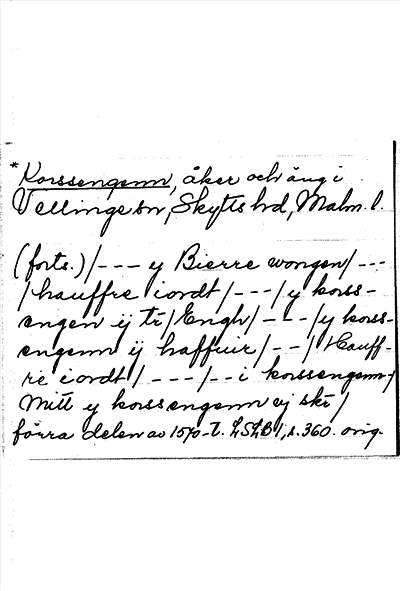 *Korssengenn, åker och äng i
Vellinge sn, Skytts hd, Malm. l.
(forts.) /--- y Bierre wongen/ ---
/hauffre iordt/ --- /y korss-
engen ij tr/Engh/ --- /y korss-
engenn ij haffuir/ -- / Hauff-
re iordt/ --- /-- i korssengenn/
Mitt y korssengenn vj skr/
förra delen av 1570-t. LSLB 1, s. 360. orig.